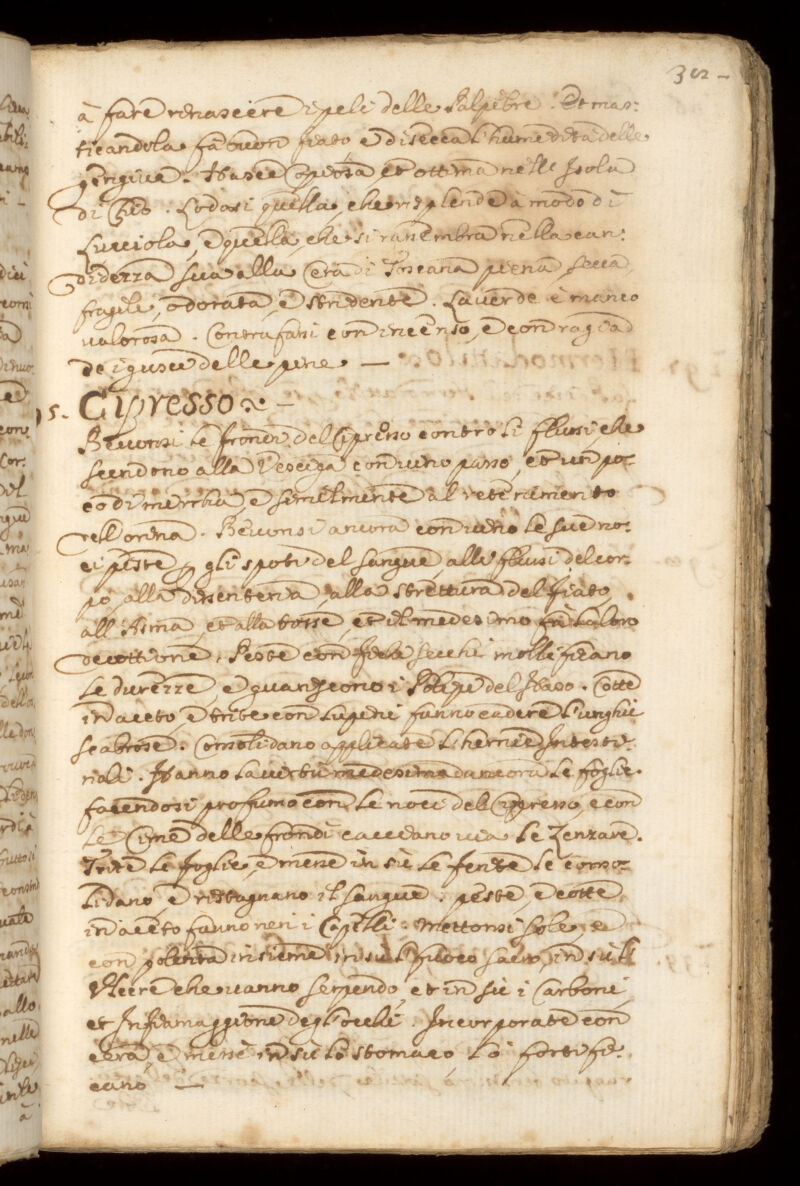 302 –
à fare rinascere i peli delle Palpebre. Et mas:
ticandola fa buon fiato e disecca l'humedità delle
gengive. Nasce copiosa et ottima nell' Isola
di Chio. Lodasi quella, che risplende à modo di
Lucciola, e quella, che si rassembra nella can:
didezza sua alla Cera di Toscana piena, secca,
fragile, odorata, e stridente. La verde è manco
valorosa. Contrafassi con incenso, e con ragia
de i gusci delle pine —
5. Cipresso. –
Bevonsi le frondi del Cipresso contro li flussi, che
scendono alla Vescica con vino passo, et un po:
co di mirrha, e similmente al retenimento
dell'orina. Bevonsi ancora con vino le sue no:
ci peste p gli sputi del sangue, alli flussi del cor:
po, alla dissenteria, alla strettura del fiato,
all'Asma, et alla tosse, et il medesimo fa la loro
decottione. Peste con fichi secchi mollificano
le durezze, e guariscono i Polipi del Naso. Cotte
in aceto, e trite con lupini fanno cadere l'unghie
scabrose. Consolidano applicate l'hernie Intesti:
nali. Hanno la virtù medesima ancora le foglie.
facendosi profumo con le noci del Cipresso, e con
le Cime delle frondi cacciano via le Zenzare.
Trite le foglie, e messe in sù le ferite le conso:
lidano, e ristagnano il sangue. peste, e cotte
in aceto fanno neri i Capelli. mettonsi sole, e
con polenta insieme in sù 'l fuoco sacro, in sù l'
Ulcere che vanno serpendo, et in sù i Carboni
et Infiamaggione degl'occhi. Incorporate con
cera, e messe in sù lo stomaco, lo fortifi:
cano —